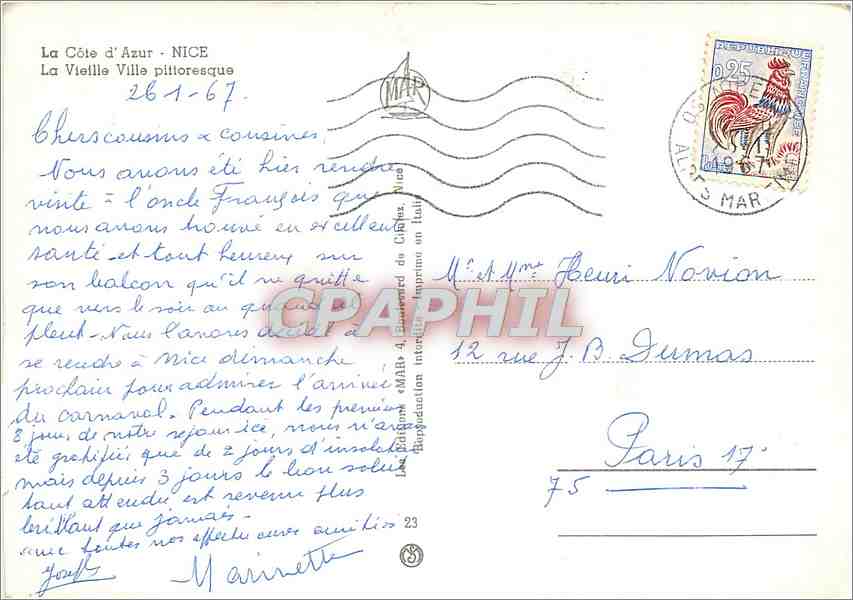 La Côte d'Azur - NICE
La Vieille Ville pittoresque
26-1-67.
Chers cousins & cousines,
Nous avons été hier rendre
visite à l'oncle François que
nous avons trouvé en excellente
santé et tout heureux sur
son balcon qu'il ne quitte
que vers le soir ou quand il
pleut - Nous l'avons décidé à
se rendre à Nice dimanche
prochain pour admirer l'arrivée
du carnaval. Pendant les premiers
8 jours de notre séjour ici, nous n'avons
été gratifiés que de 2 jours d'insolation
mais depuis 3 jours le bon soleil
tant attendu est revenu plus
brillant que jamais -
avec toutes nos affectueuses amitiés
Joseph Marinette
MAR
REPUBLIQUE FRANÇAISE
0,25
1967
ALPES MAR
Les Editions «MAR» 4, Boulevard de Cimiez, Nice
Reproduction interdite Imprimé en Italie
CPAPHIL
Mr et Mme Henri Novion
12 rue J. B. Dumas
Paris 17e
75
23